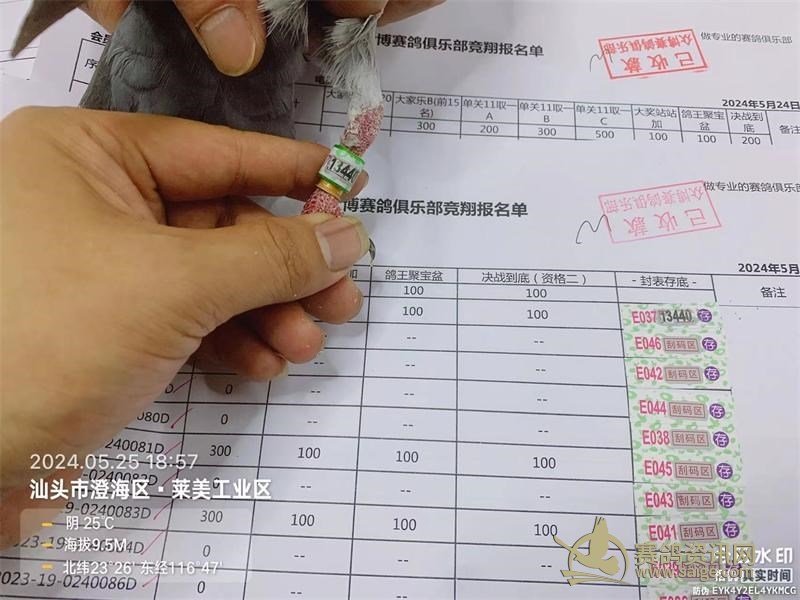 会员
博赛鸽俱乐部竞翔报名单
做专业的赛鸽俱乐部
众博赛鸽俱乐部
已收款
2024年5月24日
大家乐B(前15名) 单关11取一A 单关11取一B 单关11取一C 大奖站站加 鸽王聚宝盆 决战到底 备注
300 200 300 500 100 100 200
13440
博赛鸽俱乐部竞翔报名单
做专业的赛鸽俱乐部
众博赛鸽俱乐部
已收款
2024年5月
加 鸽王聚宝盆 决战到底（资格二） - 封表存底- 备注
100 100
100 100 E037 13440 存
-- -- E046 刮码区 存
-- -- E042 刮码区 存
0 -- -- E044 刮码区 存
080D 0 -- -- -- E038 刮码区 存
0240081D 300 100 100 100 E045 刮码区 存
0 -- -- -- E043 刮码区 存
-0240083D 300 100 100 100 E041 刮码区 存
0 -- -- --
2023-19-0240086D 0
2024.05.25 18:57
汕头市澄海区·莱美工业区
阴 25℃
海拔9.5M
北纬23°26′ 东经116°47′
赛鸽资讯网
www.saige.com
水印
真实时间
防伪 EYK4Y2EL4YKMCG